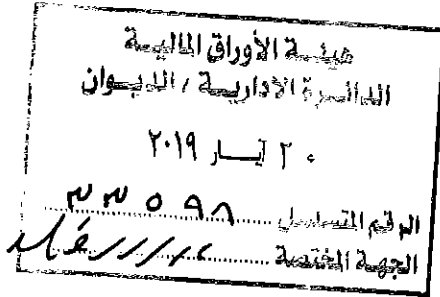 هيئة الأوراق المالية
الدائرة الادارية / الديوان
٢٠ آيار ٢٠١٩
الرقم المتسلسل ٣٣٥٩٨
الجهة المختصة